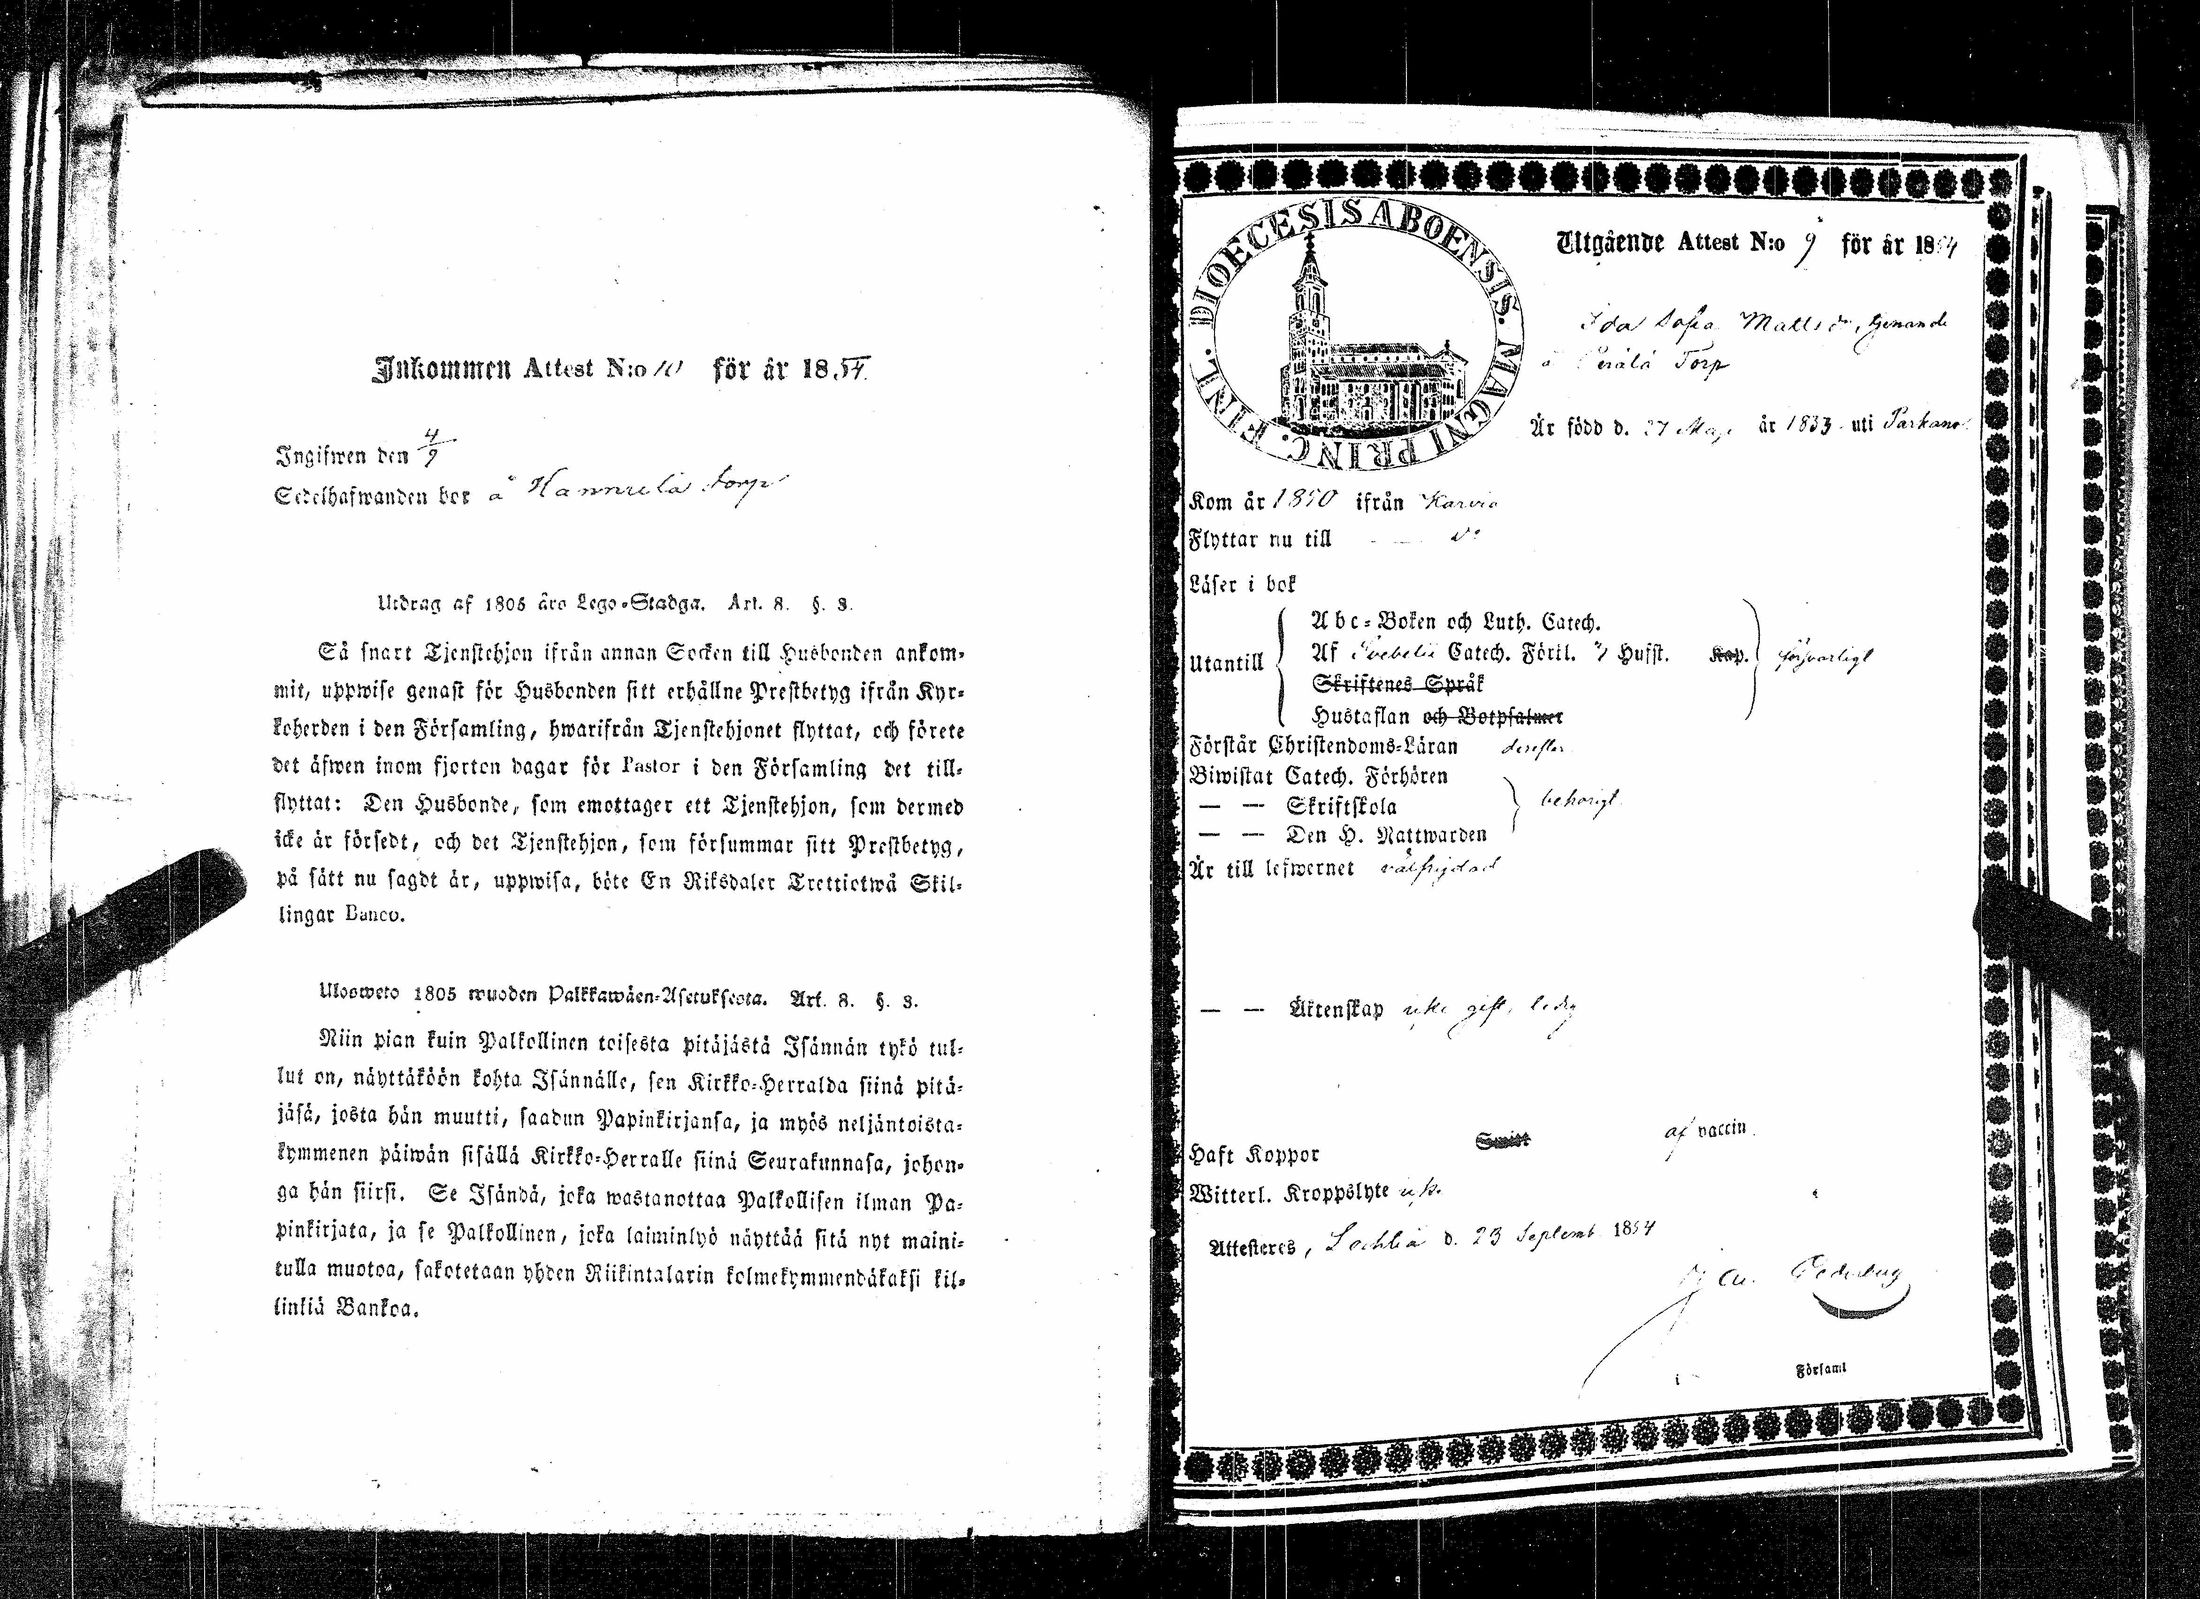 Inkommen Attest N:o 10 för år 1854.
Ingifwen den 4/9
Sedelhafwanden bor å Hannula torp
Utdrag af 1805 års Lego-Stadga. Art. 8. §. 3.
Så snart Tjenstehjon ifrån annan Socken till Husbonden ankom-
mit, uppwise genast för Husbonden sitt erhållne Prestbetyg ifrån Kyr-
koherden i den Församling, hwarifrån Tjenstehjonet flyttat, och förete
det äfwen inom fjorton dagar för Pastor i den Församling det till-
flyttat: Den Husbonde, som emottager ett Tjenstehjon, som dermed
icke är försedt, och det Tjenstehjon, som försummar sitt Prestbetyg,
på sätt nu sagdt är, uppwisa, böte En Riksdaler Trettiotwå Skil-
lingar Banco.
Ulosweto 1805 wuoden Palkkawäen-Asetuksesta. Art. 8. §. 3.
Niin pian kuin Palkollinen toisesta pitäjästä Isännän tykö tul-
lut on, näyttäköön kohta Isännälle, sen Kirkko-Herralda siinä pitä-
jäsä, josta hän muutti, saadun Papinkirjansa, ja myös neljäntoista-
kymmenen päiwän sisällä Kirkko-Herralle siinä Seurakunnasa, johon-
ga hän siirsi. Se Isändä, joka wastanottaa Palkollisen ilman Pa-
pinkirjata, ja se Palkollinen, joka laiminlyö näyttää sitä nyt maini-
tulla muotoa, sakotetaan yhden Riikintalarin kolmekymmendäkaksi kil-
linkiä Bankoa.
DIOECESIS ABOENSIS. MAGNI PRINC. FINL.
Utgående Attest N:o 9 för år 1854
Ida Sofia Matts dr, tjenande
å Perälä Torp
Är född d. 27 Maji år 1833 uti Parkano
Kom år 1850 ifrån Karvia
Flyttar nu till — — do
Läser i bok
Utantill
Abc-Boken och Luth. Catech.
Af Svebelii Catech. Förkl. Hufst. Kap. försvarligt
Skriftenes Språk
Hustaflan och Botpsalmer
Förstår Christendoms-Läran derefter
Biwistat Catech. Förhören
— — Skriftskola behörigt.
— — Den H. Nattwarden
Är till lefwernet välfrejdad
— — Äktenskap icke gift, ledig
Haft Koppor Smitt af vaccin.
Witterl. Kroppslyte ick.
Attesteres, d. 23 Septemb. 1854
Församl